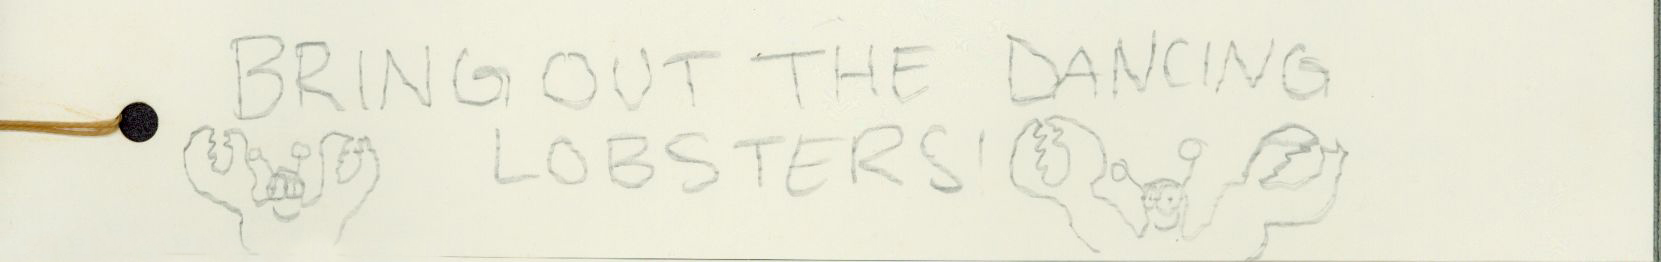 BRING OUT THE DANCING
LOBSTERS!